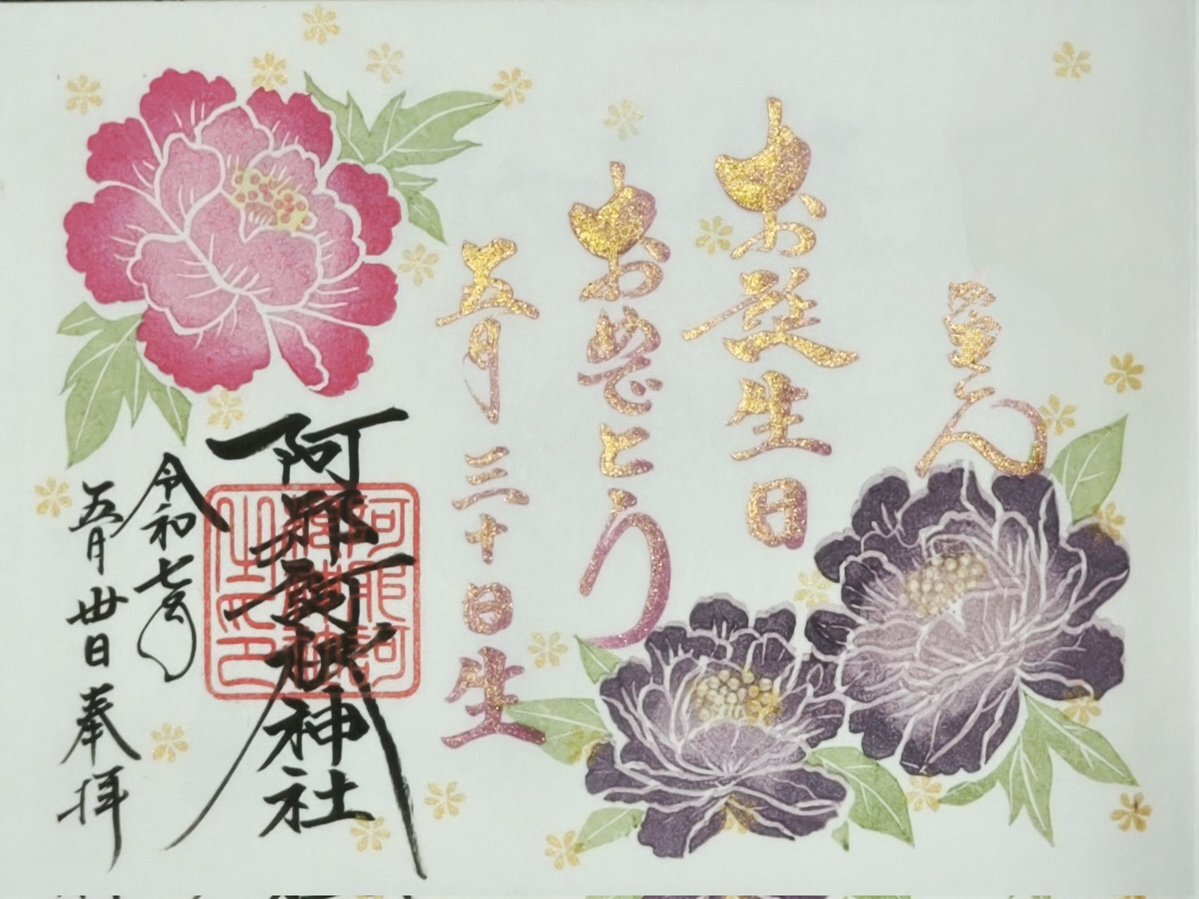 さん
お誕生日
おめでとう
五月三十日生
阿邪訶根神社
令和七年
五月卅日奉拝